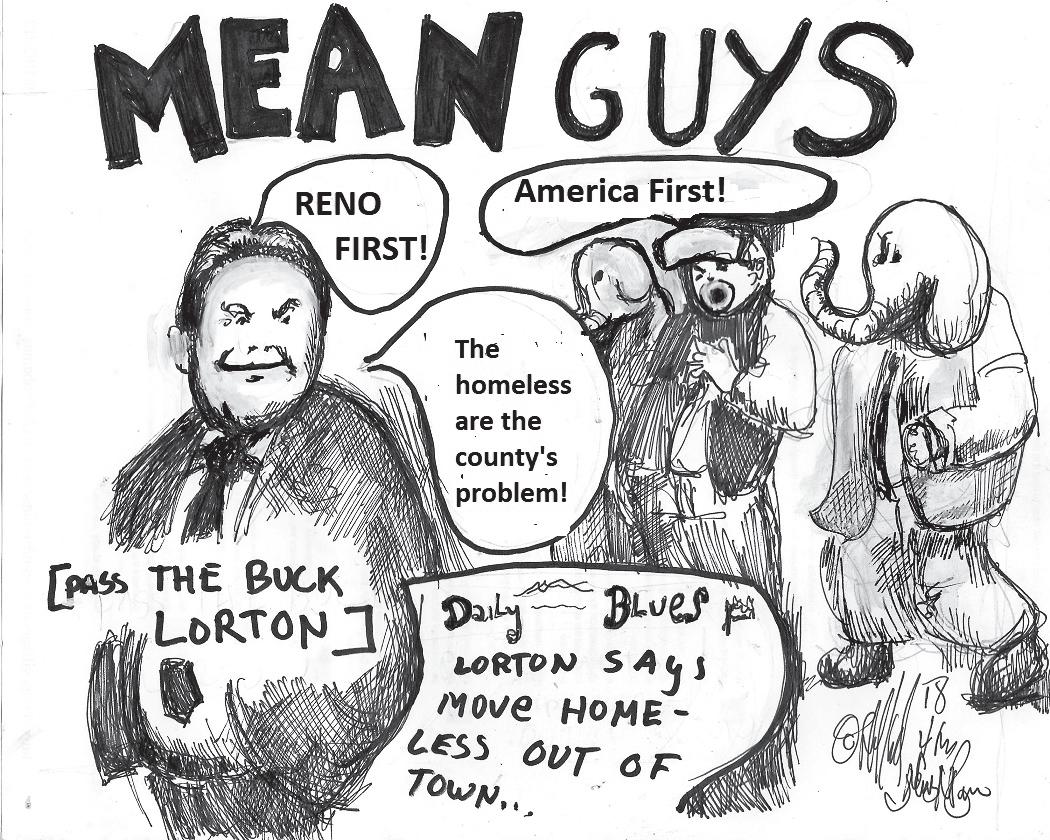 MEAN GUYS
RENO
FIRST!
America First!
The
homeless
are the
county's
problem!
[PASS THE BUCK
LORTON]
DAily BLUES
LORTON SAys
MOVe HOME-
LESS OUT OF
TOWN..
18